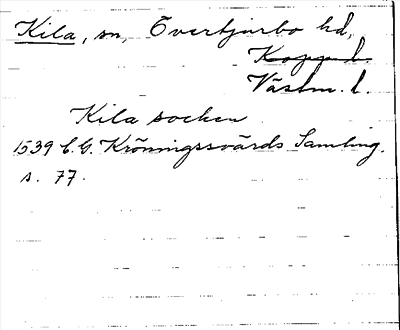 Kila, sn, Övertjurbo hd,
Kopp. l.
Västm. l.
Kila socken
1539 C.G. Kröningssvärds Samling.
s. 77.